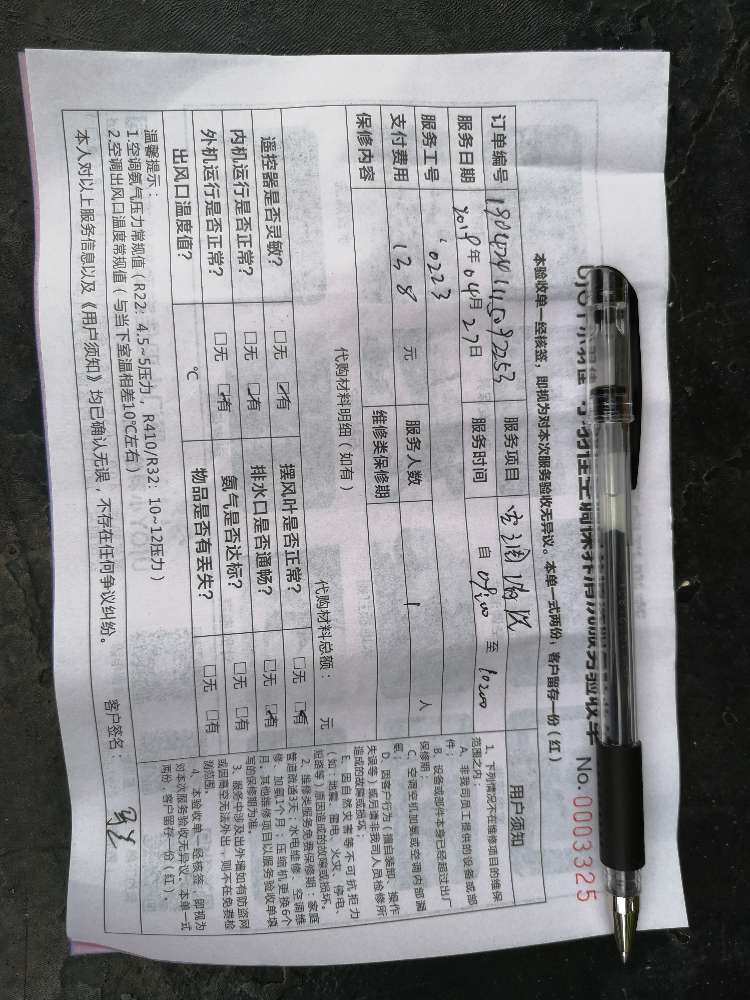 No.0003325
本验收单一经核签，即视为对本次服务验收无异议。本单一式两份，客户留存一份（红）
订单编号 服务项目 空调清洗
服务日期 2019年04月27日 服务时间 自 至
服务工号 0223 服务人数 1 人
支付费用 138 元 维修类保修期
保修内容
代购材料明细（如有） 代购材料总额： 元
遥控器是否灵敏？ □无 □有 摆风叶是否正常？ □无 □有
内机运行是否正常？ □无 □有 排水口是否通畅？ □无 □有
外机运行是否正常？ □无 □有 氨气是否达标？ □无 □有
出风口温度值？ ℃ 物品是否有丢失？ □无 □有
温馨提示：
1.空调氨气压力常规值（R22：4.5~5压力，R410/R32：10~12压力）
2.空调出风口温度常规值（与当下室温相差10℃左右）
本人对以上服务信息以及《用户须知》均已确认无误，不存在任何争议纠纷。 客户签名：
用户须知
1、下列情况不在维修项目的维保
范围之内：
A、非我司员工提供的设备或部
件；
B、设备或部件本身已经超过出厂
保修期；
C、空调空机加氨或空调内部漏
氨；
D、因客户行为（擅自装卸、操作
失误等）或另请非我司人员检修所
造成的故障或损坏；
E、因自然灾害等不可抗拒力
（如：地震、雷电、火灾、停电、
短路等）原因造成的故障或损坏。
2、维修类服务免费保修期：家庭
管道疏通3天，水电维修、空调维
修、加氨1个月；压缩机更换6个
月；其他维修项目以服务验收单填
写的保修期为准。
3、服务中涉及出外墙如有防盗网
或因高空无法外出，则不在免费检
测范围。
4、本验收单一经核签，即视为
对本次服务验收无异议。本单一式
两份，客户留存一份（红）。